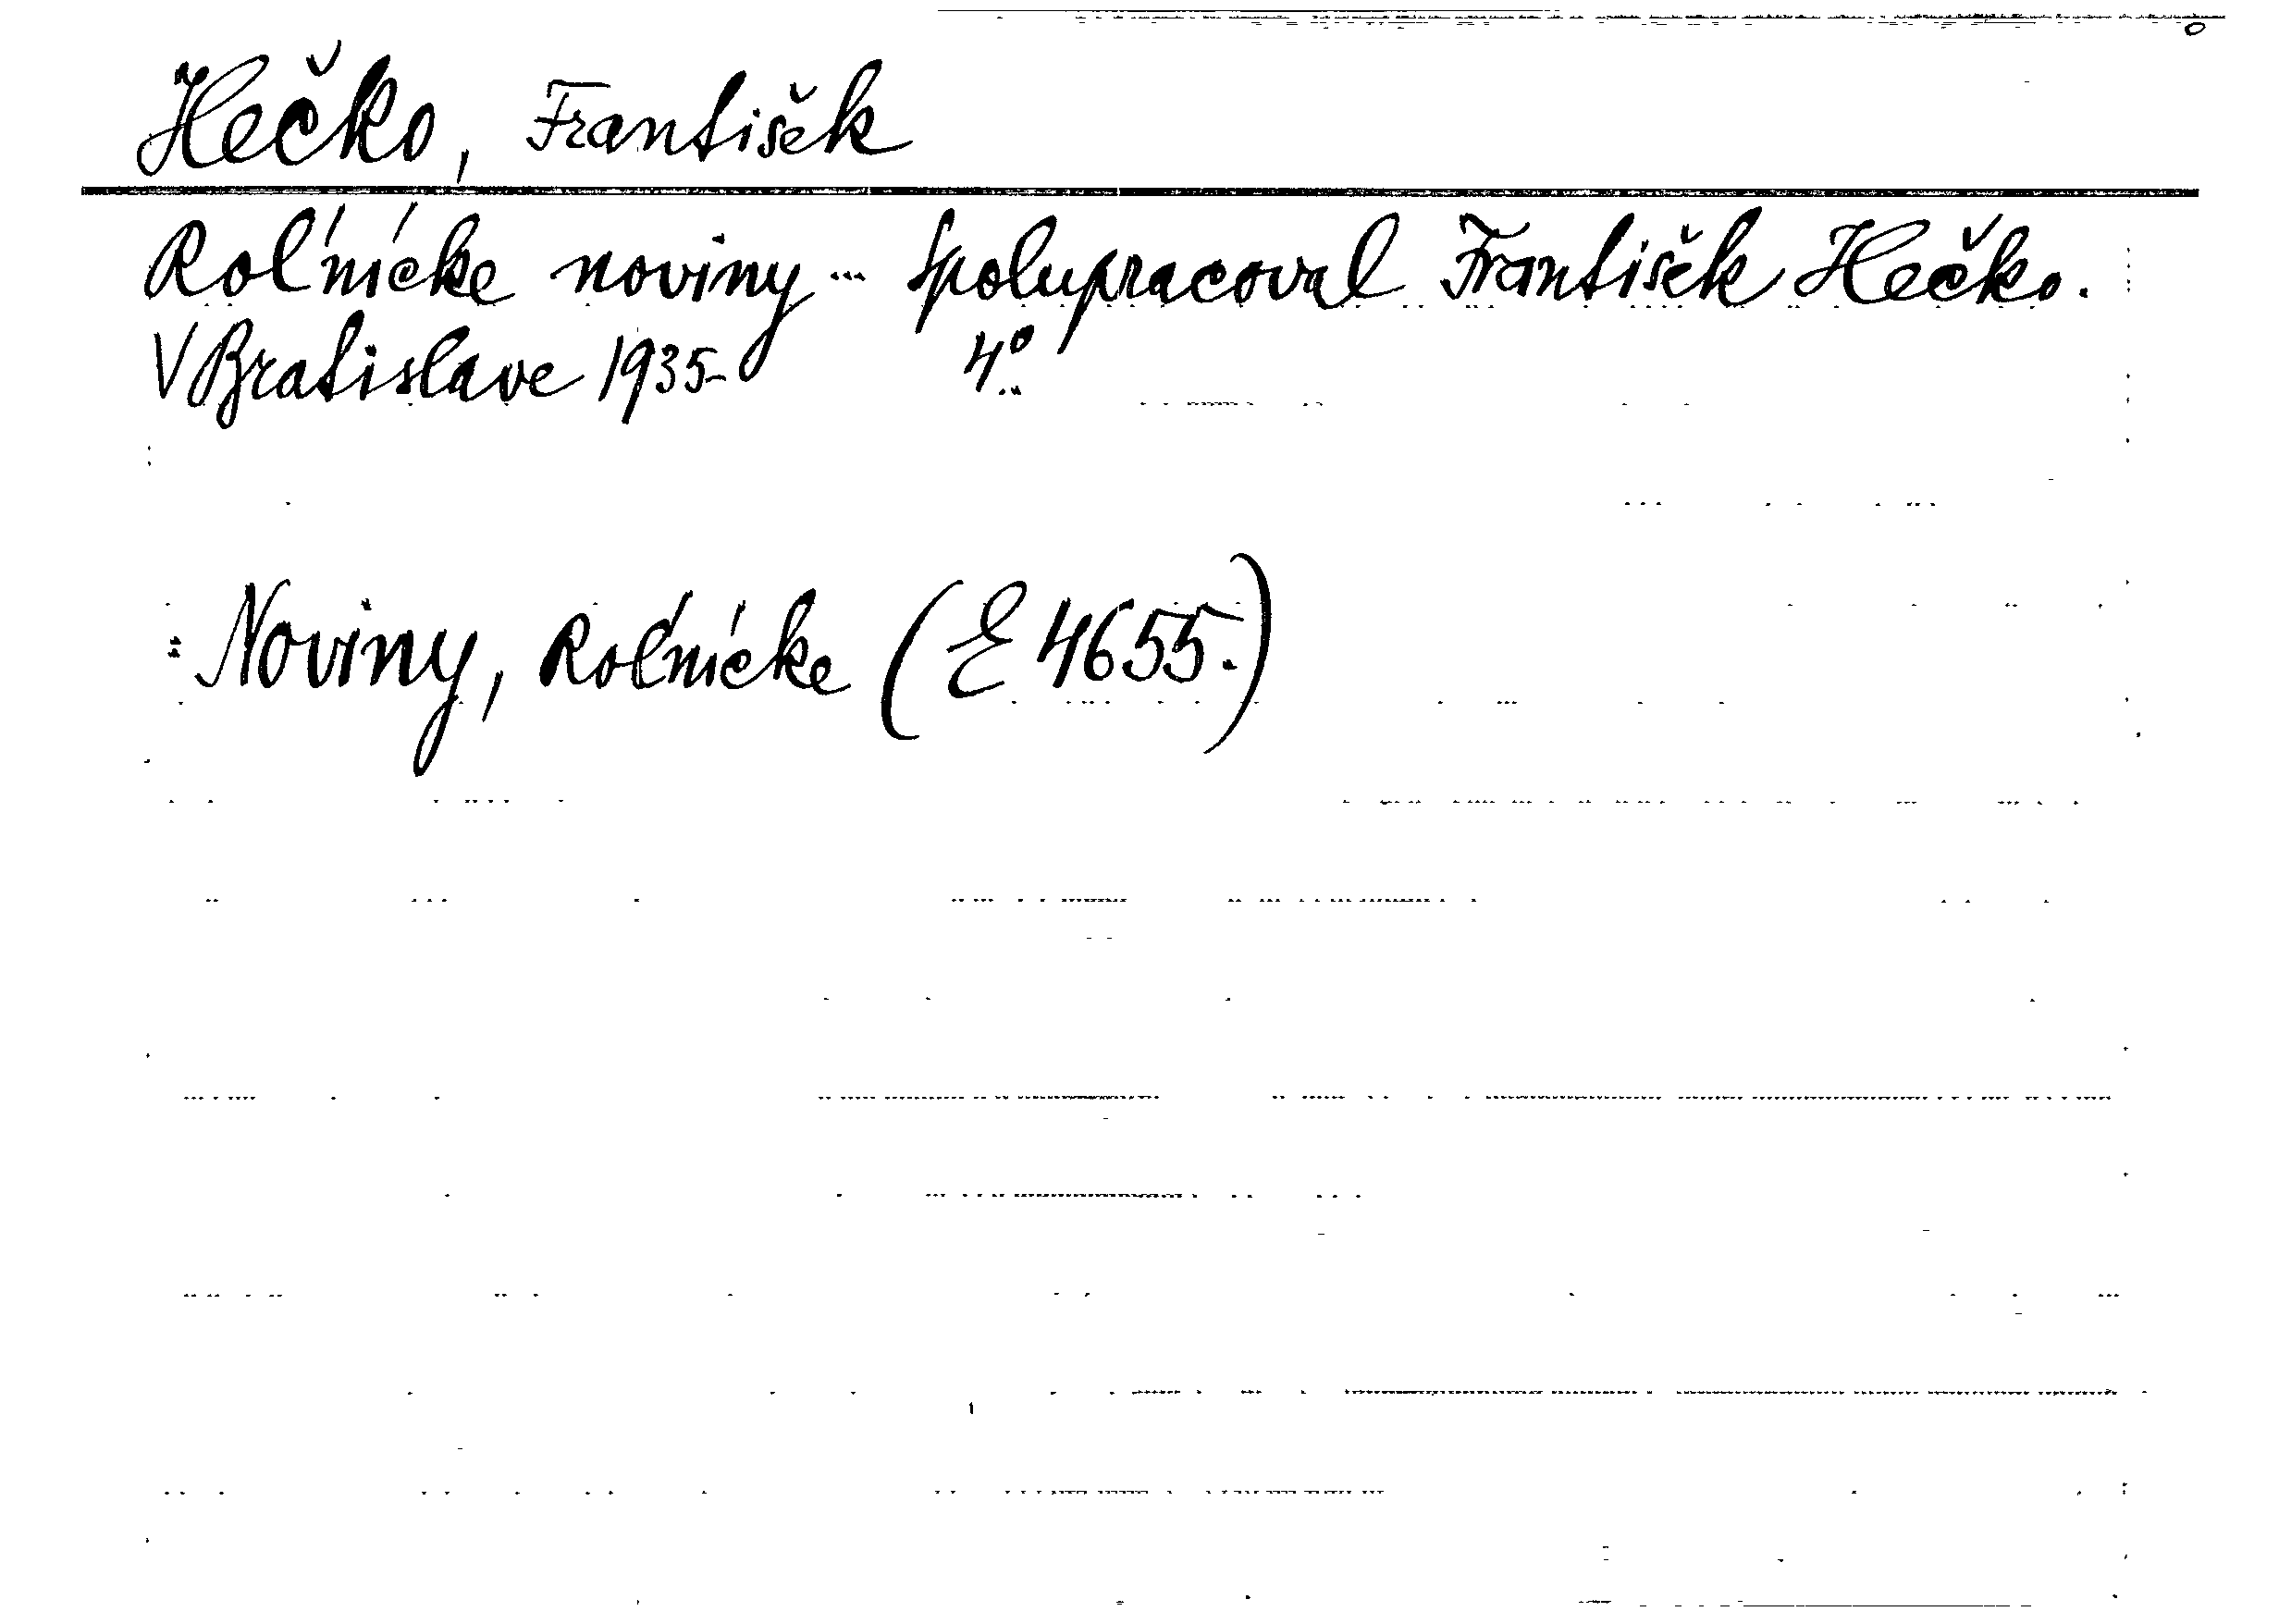 Hečko, František
Roľnícke noviny ... Spolupracoval František Hečko.
V Bratislave 1935- 4°
Noviny, Roľnícke (E 4655.)